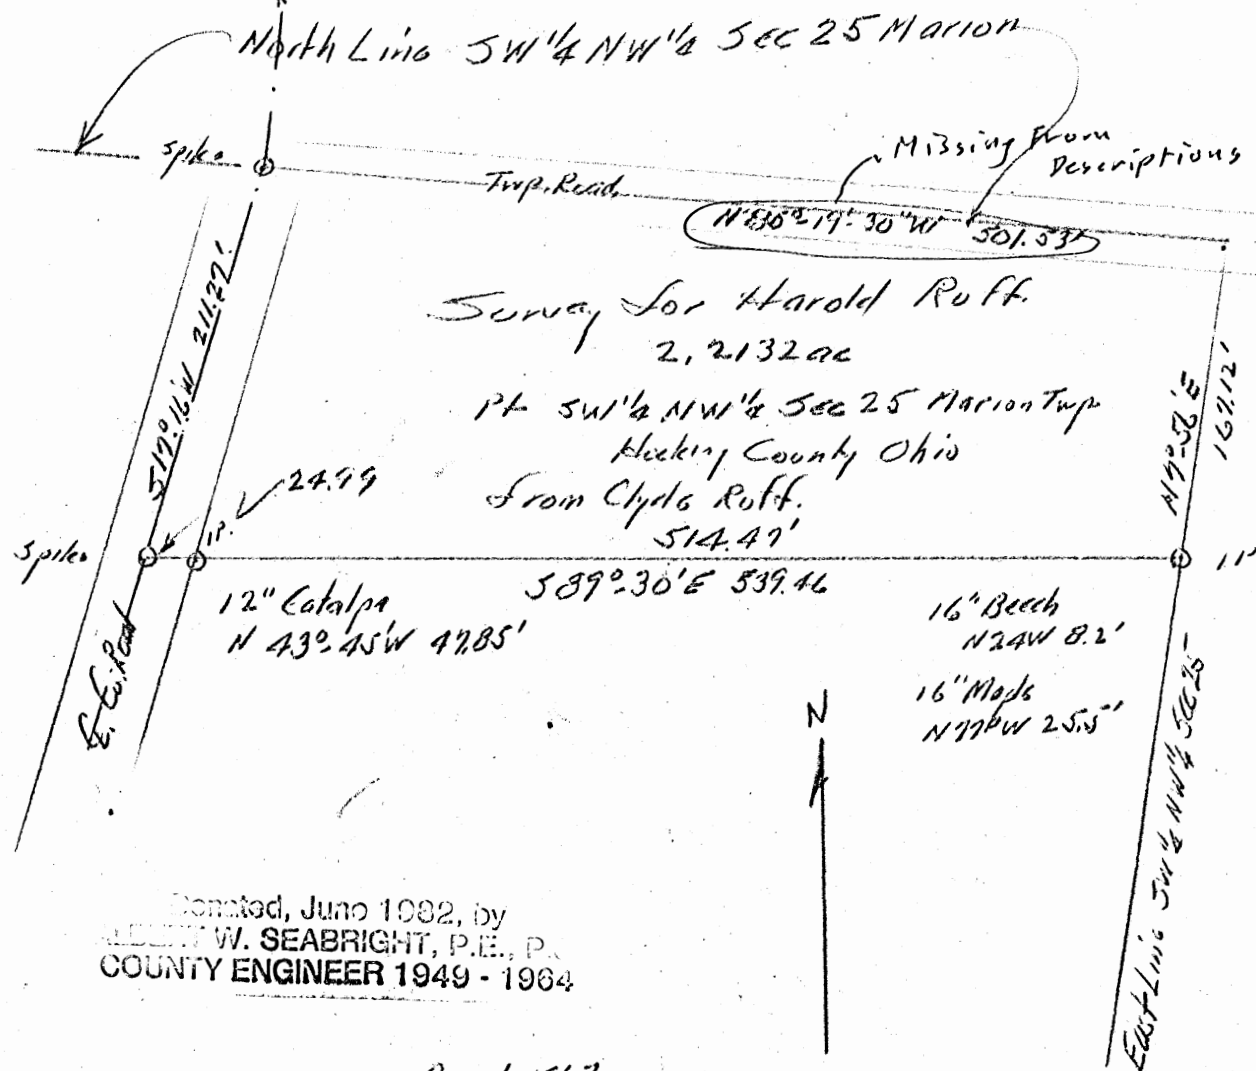 North Line SW 1/4 NW 1/4 Sec 25 Marion
Missing From
Descriptions
Spike
Twp. Road
19'-30"W 501.53'
Survey for Harold Ruff.
2.2132 ac
S17°-16'W 211.27'
Pt SW 1/4 NW 1/4 Sec 25 Marion Twp
Hocking County Ohio
from Clyde Ruff.
N7°-56'E
167.12'
24.99
I.P.
514.47'
Spike
S89°-30'E 539.46
12" Catalpa
N 43°-45'W 47.85'
16" Beech
N24W 8.2'
16" Maple
N77°W 25.5'
Co. Road
N
East Line SW 1/4 NW 1/4 Sec 25
Donated, June 1982, by
ALBERT W. SEABRIGHT, P.E., P.
COUNTY ENGINEER 1949 - 1964